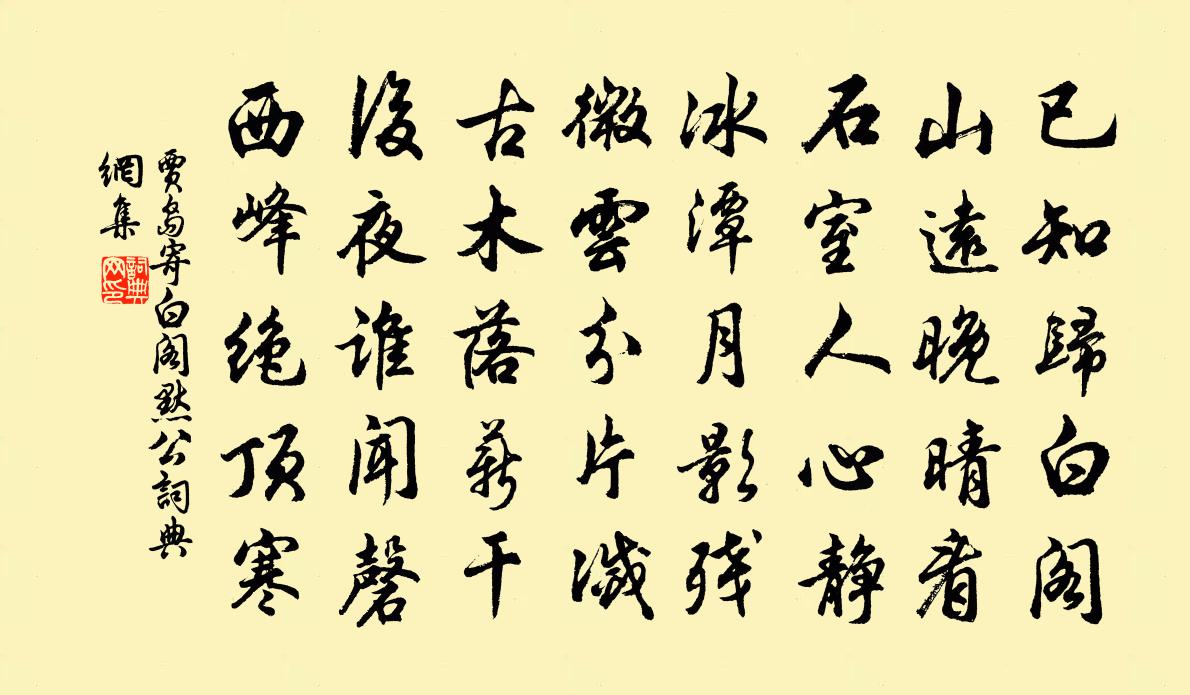 已知歸白阁
山遠晚晴看
石室人心静
冰潭月影残
微雲分片滅
古木落薪干
後夜谁闻磬
西峰绝顶寒
賈島寄白阁默公詞典
網集
詞典网印